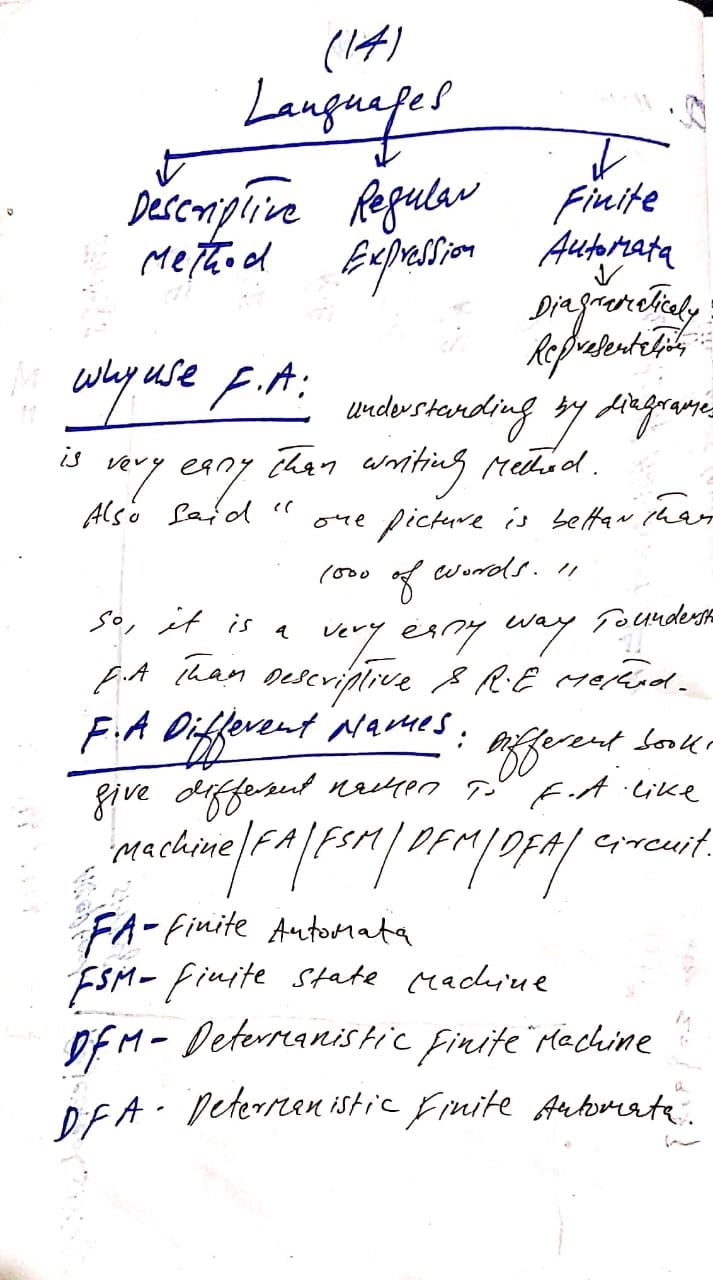 (14)
Languages
Descriptive Regular Finite
Method Expression Automata
Diagramaticely
Representation
Why use F.A:
understanding by diagrames
is very easy than writing Method.
Also Said " one picture is better than
1000 of words. "
So, it is a very easy way To underst
F.A Than Descriptive & R.E Method.
F.A Different Names: Different book
give different names To F.A like
Machine/FA/FSM/DFM/DFA/ circuit.
FA- Finite Automata
FSM- Finite State Machine
DFM- Determanistic Finite Machine
DFA- Determanistic Finite Automata.